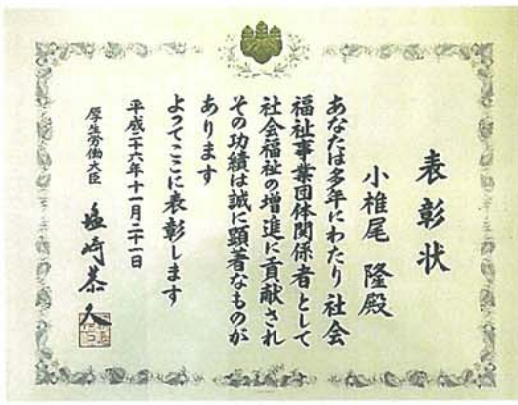 表彰状
小椎尾 隆殿
あなたは多年にわたり社会
福祉事業団体関係者として
社会福祉の増進に貢献され
その功績は誠に顕著なものが
あります
よってここに表彰します
平成二十六年十一月二十一日
厚生労働大臣 塩崎恭久